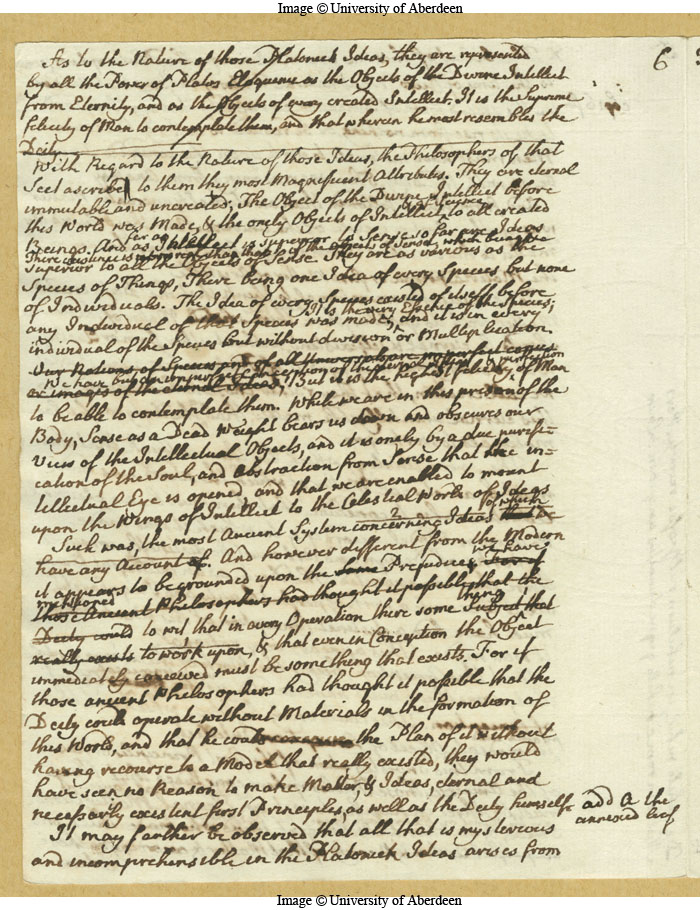 Image © University of Aberdeen
6
As to the Nature of those Platonick Ideas, they are represented
by all the Power of Platos Eloquence as the Objects of the Divine Intellect
from Eternity, and as the Objects of every created Intellect. It is the Supreme
felicity of Man to contemplate them, and that wherein he most resembles the
Deity.
With Regard to the Nature of those Ideas, the Philosophers of that
Sect ascribe to them they most Magnificent Attributes. They are eternal
immutable and uncreated; The Object of the Divine Intellect before
this World was Made, & the onely Objects of Intellect to all created
Beings. And as Intellect is superior to Sense so far are Ideas
There existence is more real than that of the objects of Sense, which
superior to all the Objects of Sense. They are as various as the
Species of Things, There being one Idea of every Species but none
of Individuals. The Idea of every Species existed of itself before
It is the very Essence of the Species;
any Individual of that Species was made, and it is in every
individual of the Species but without division or Multiplication.
Our Notions, of Species and of all Universals are imperfect copies
We have but an imperfect conception of the eternal Ideas
or images of the eternal Ideas, But it is the highest felicity of Man
to be able to contemplate them. While we are in this prison of the
Body, Sense as a Dead Weight bears us down and obscures our
View of the Intellectual Objects, and it is onely by a due purifi-
cation of the Soul, and abstraction from Sense that the in-
tellectual Eye is opened, and that we are enabled to mount
upon the Wings of Intellect to the Celestial World of Ideas
Such was, the most Ancient System concerning Ideas of which
have any Account of. And however different from the Modern
we have
it appears to be grounded upon the same Prejudice,
mentioned
those Ancient Philosophers had thought it possible that the
Deity could to wit that in every Operation there some Subject that
really exists to work upon, & that even in Conception the Object
immediately conceived must be something that exists. For if
those ancient Philosophers had thought it possible that the
Deity could operate without Materials in the formation of
this World, and that he could conceive the Plan of it without
having recourse to a Model that really existed, they would
have seen no Reason to make Matter, & Ideas, eternal and
necessarly existent first Principles, as well as the Deity himself. add A the
annexed leaf
It may farther be observed that all that is mysterious
and incomprehensible in the Platonick Ideas arises from
Image © University of Aberdeen